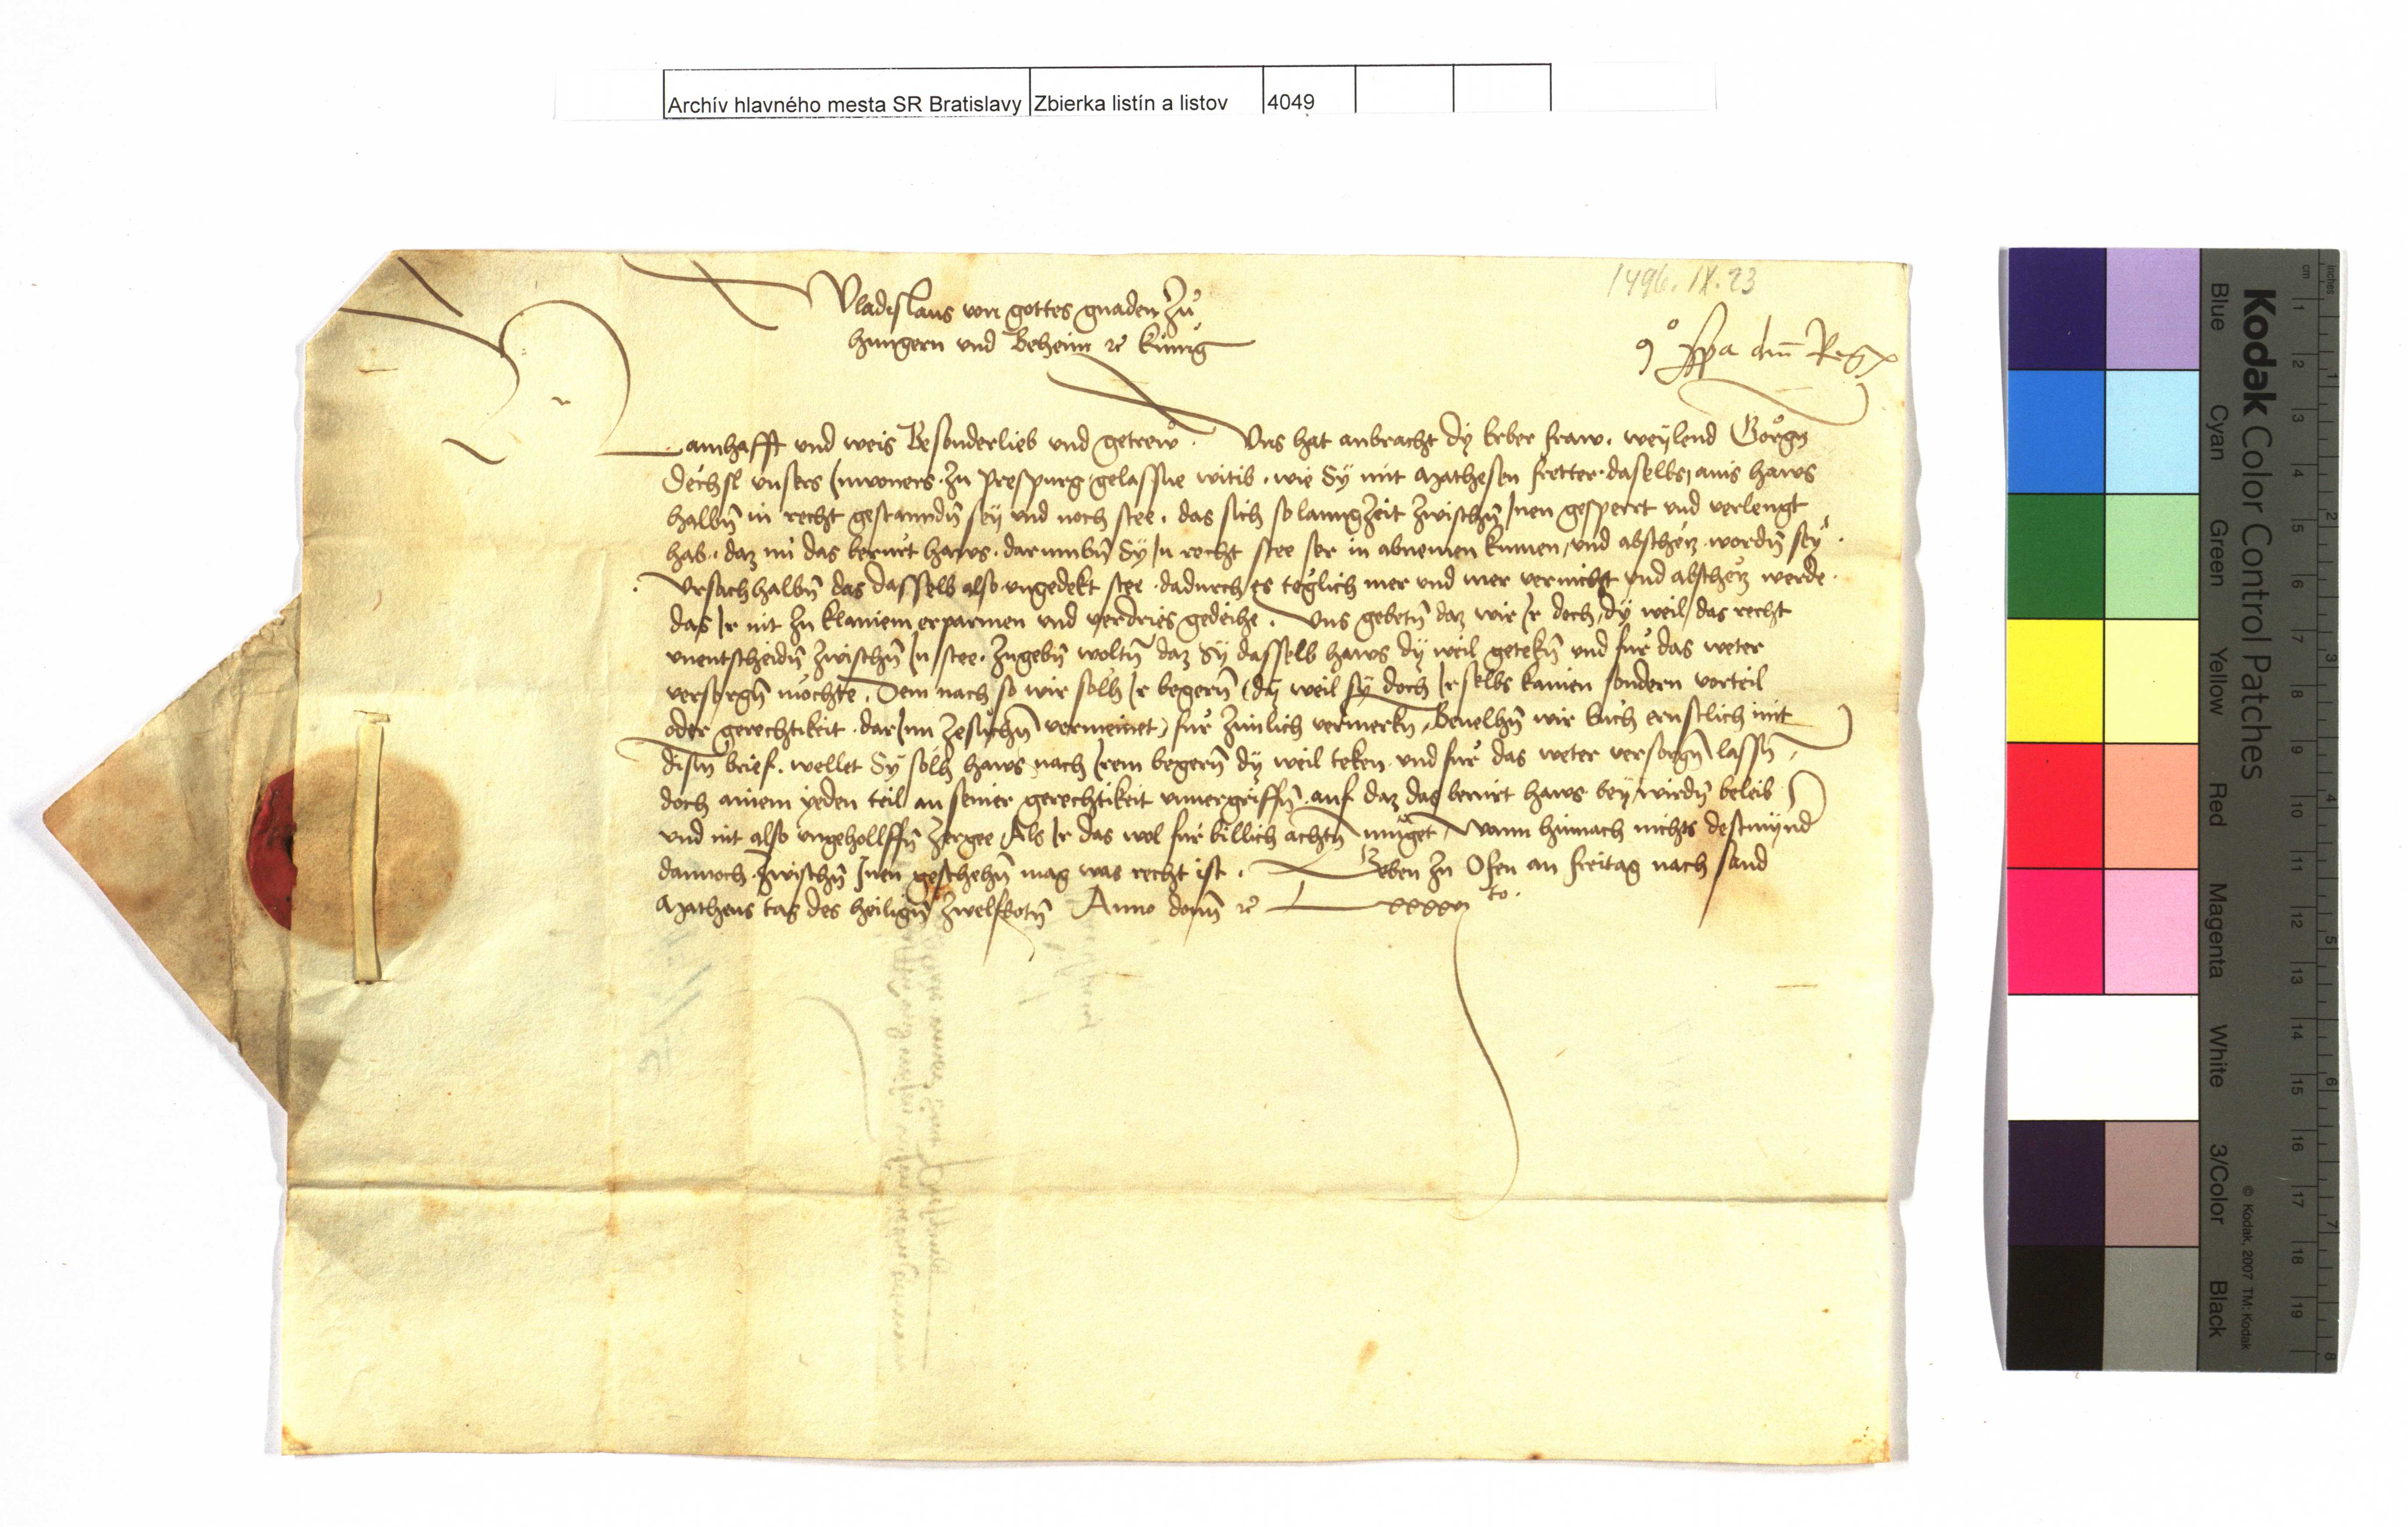 Archív hlavného mesta SR Bratislavy Zbierka listín a listov 4049
1496. IX. 23
Vladislaus von gottes gnaden Zů
hungern und Beheim ꝛc Kůnig
Regꝭ
Namhafft und weis Besonderlieb und getrew. Vns hat anbracht dÿ erber fraw. weÿlend Görgn
Déchsl vnsers Inwoners. Zu Prespurg gelassne witib. wie Sÿ mit Mathesen fretter. daselbs, ains haws
halbn̄ in recht gestanndn̄ seÿ und noch stee. das sich so lanng Zeit Zwischn̄ Inen gesperrt und verlengt
hab. daz nů das berůrt haws. darumbn̄ Sÿ In recht stee ser in abnemen kumen, und abscheuz wordn̄ seÿ.
Vrsachhalbn̄ das dasselb also vngedekt stee. dadurch es teglich mer und mer vernicht und abscheuz werde.
das Ir nit Zu klainem erparmen und verdries gedeihe. Vns gebetn̄ daz wir Ir doch, dÿ weil, das recht
vnentscheidn̄ Zwischn̄ In stee. Zugebn̄ woltn̄ daz Sÿ dasselb haws dÿ weil getekn̄ und fůr das weter
versorgn̄ mochte. Dem nach so wir solh Ir begern̄ (dÿ weil sÿ doch Ir selbs kainen sondern vorteil
oder gerechtikeit. darInn Zesůchn̄ vermeinet) fůr Zimlich vermerkn̄, Beuelhn̄ wir Euch ernstlich mit
disn̄ brief. wellet Sÿ solh haws nach Irem begern̄ dÿ weil teken. und fůr das weter versorgn̄ lassn̄,
doch ainem yeden teil an seiner gerechtikeit vnuergriffn̄. auf daz das berůrt haws beÿ wirdn̄ beleib
und nit also vngehollffn̄ Zergee Als Ir das wol fůr billich achtn̄ můget, Wann hinnach nichts destmÿnd
dannoch. Zwischn̄ Inen geschehn̄ mag was recht ist. Geben Zu Ofen an freitag nach sand
Matheus tag des heilign̄ Zwelfbotn̄ Anno domī ꝛc xxxxvi to.
Kodak Color Control Patches
Blue Cyan Green Yellow Red Magenta White 3/Color Black
© Kodak, 2007 TM: Kodak
inches 1 2 3 4 5 6 7 8
cm 1 2 3 4 5 6 7 8 9 10 11 12 13 14 15 16 17 18 19